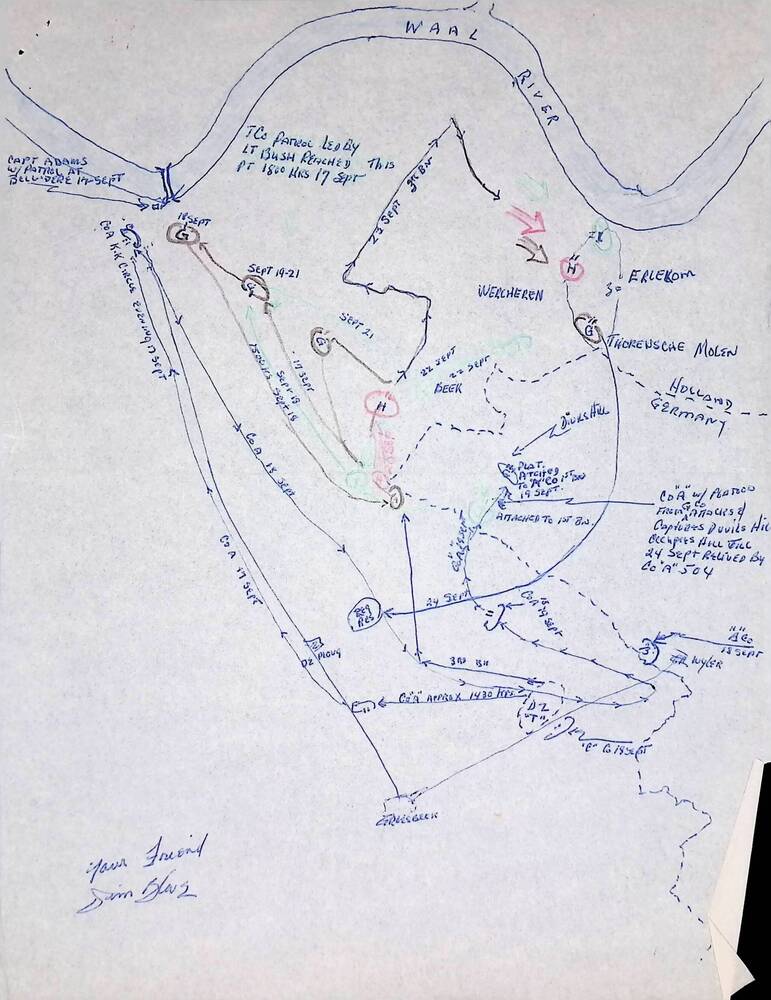 WAAL
RIVER
I Co PATROL LED By
LT BUSH REACHED THIS
PT 1800 HRS 17 SEPT
CAPT ADAMS
W/PATROL AT
BELVIDERE 17 SEPT
18 SEPT
G
CoA K.K CIRCLE EVENING 17 SEPT
SEPT 19-21
G
SEPT 21
G
23 SEPT 3RD BN
H
ERLEKOM
WERCHEREN
"G"
THORENSCHE MOLEN
HOLLAND
GERMANY
22 SEPT
22 SEPT
BEEK
H
17 SEPT
SEPT 18
SEPT 18
I
DIVILS HILL
PLAT.
ATCHED
TO "A" CO 1ST BN
19 SEPT.
ATTACHED TO 1ST BN.
CO "A" W/ PLATOON
FROM G CO ATTACKS &
CAPTURES DIVILS HILL
OCCUPIES HILL TILL
24 SEPT RELIVED BY
Co "A" 504
CoA 18 SEPT
CoA 17 SEPT
REG
RES
24 SEPT
CoA 19 SEPT
"B"
"B" Co
18 SEPT
WYLER
DZ PLOUG
3RD BN
Co "A" APPROX 1430 HRS
DZ
"T"
"C" Co 18 SEPT
GROESBEEK
Your Friend